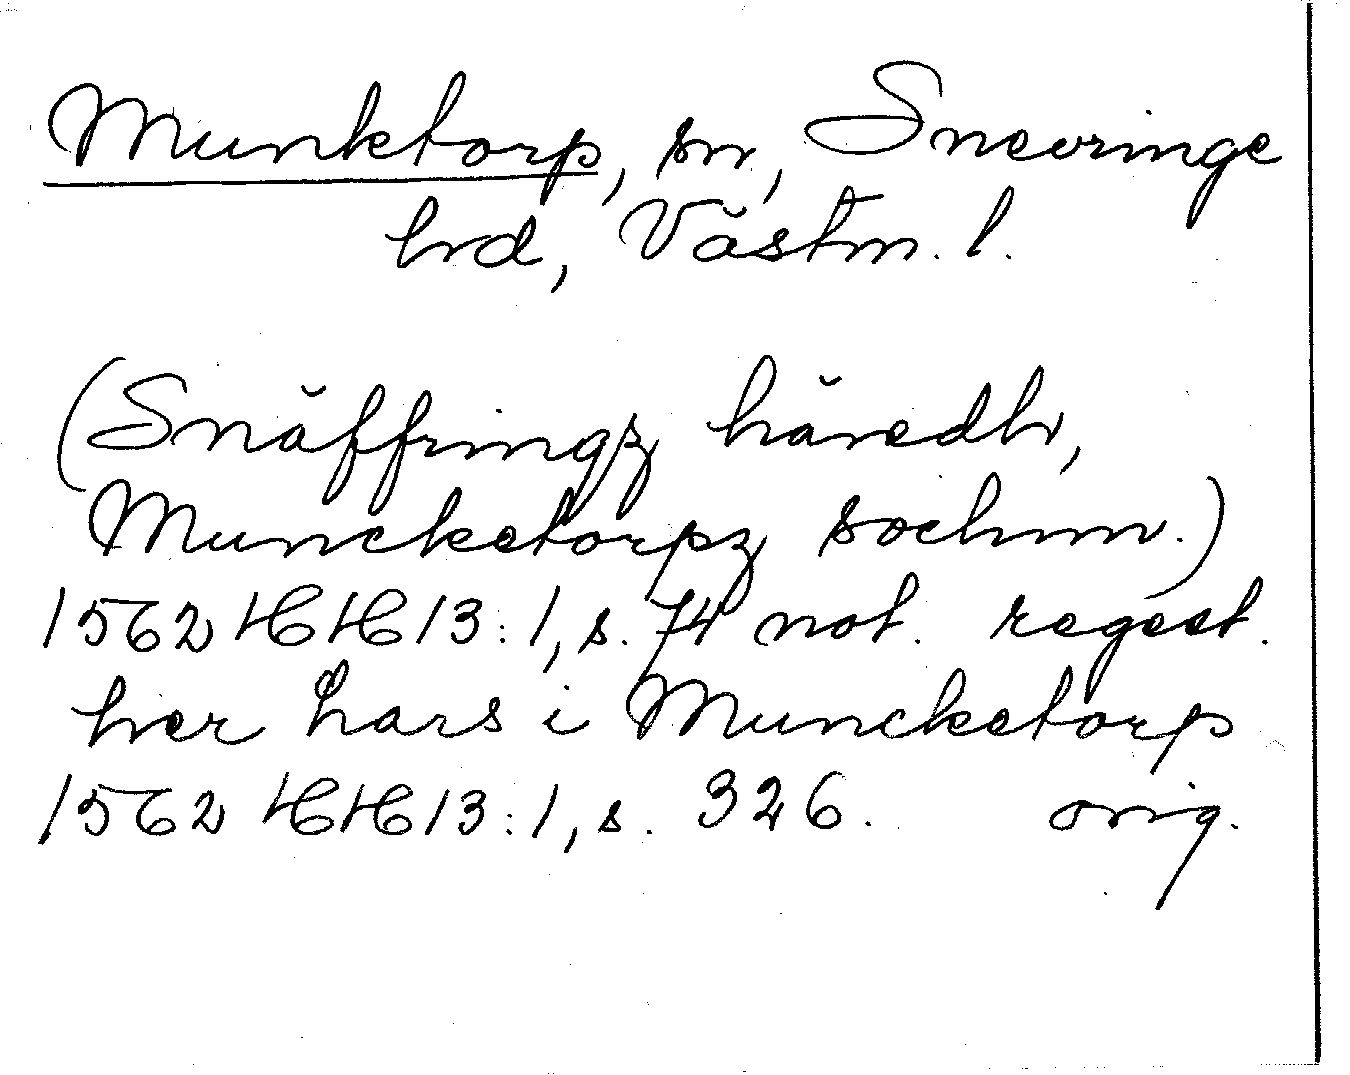 Munktorp, sn, Snevringe
hd, Västm. l.
(Snäffringz häredh,
Muncketorpz sochnn.)
1562 HH 13:1, s. 74 not. regest.
her Lars i Muncketorp
1562 HH 13:1, s. 326. orig.